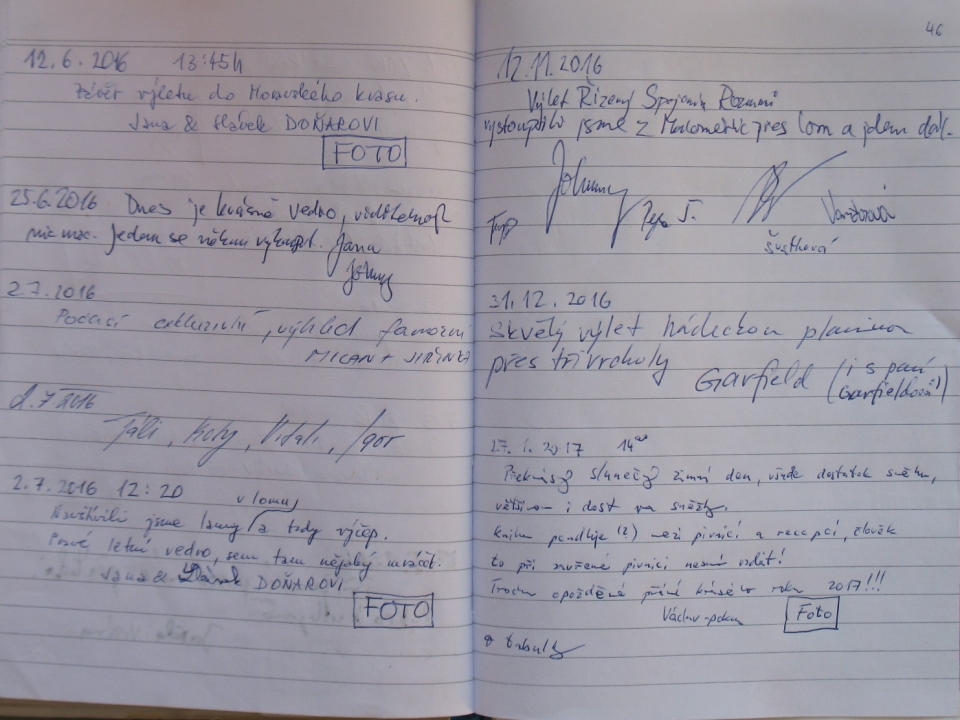 12.6.2016 13:45h
Závěr výletu do Moravského krasu.
Jana & Slávek DOŇAROVI
FOTO
25.6.2016 Dnes je krásné vedro, viditelnost
nic moc. Jedem se někam vykoupat. Jana
Johnny
2.7.2016
Počasí exkluzivní, výhled famozní
MILAN + JIŘINKA
2.7 2016
Igor
2.7.2016 12:20
v lomu
Navštívili jsme lomy a tady výčep.
Pravé letní vedro, sem tam nějaký mráček.
Jana & Slávek DOŇAROVI
FOTO
46
12.11.2016
Výlet Řízený Spojením Rozumů
vystoupili jsme z přes lom a jdem dál.
Johnny
Pepa J.
Šustková
31.12.2016
Skvělý výlet hádeckou planinou
přes tři vrcholy
Garfield (i s paní
Garfieldovou)
27.1.2017 14⁰⁰
Překrásný slunečný zimní den, všude dostatek sněhu,
většinou i dost na sněžky.
Kniha panduje (?) mezi pivnicí a recepcí, člověk
to při zavřené pivnici nesmí vzdát!
Trochu opožděně přání krásného roku 2017!!!
Václav-pokus
Foto